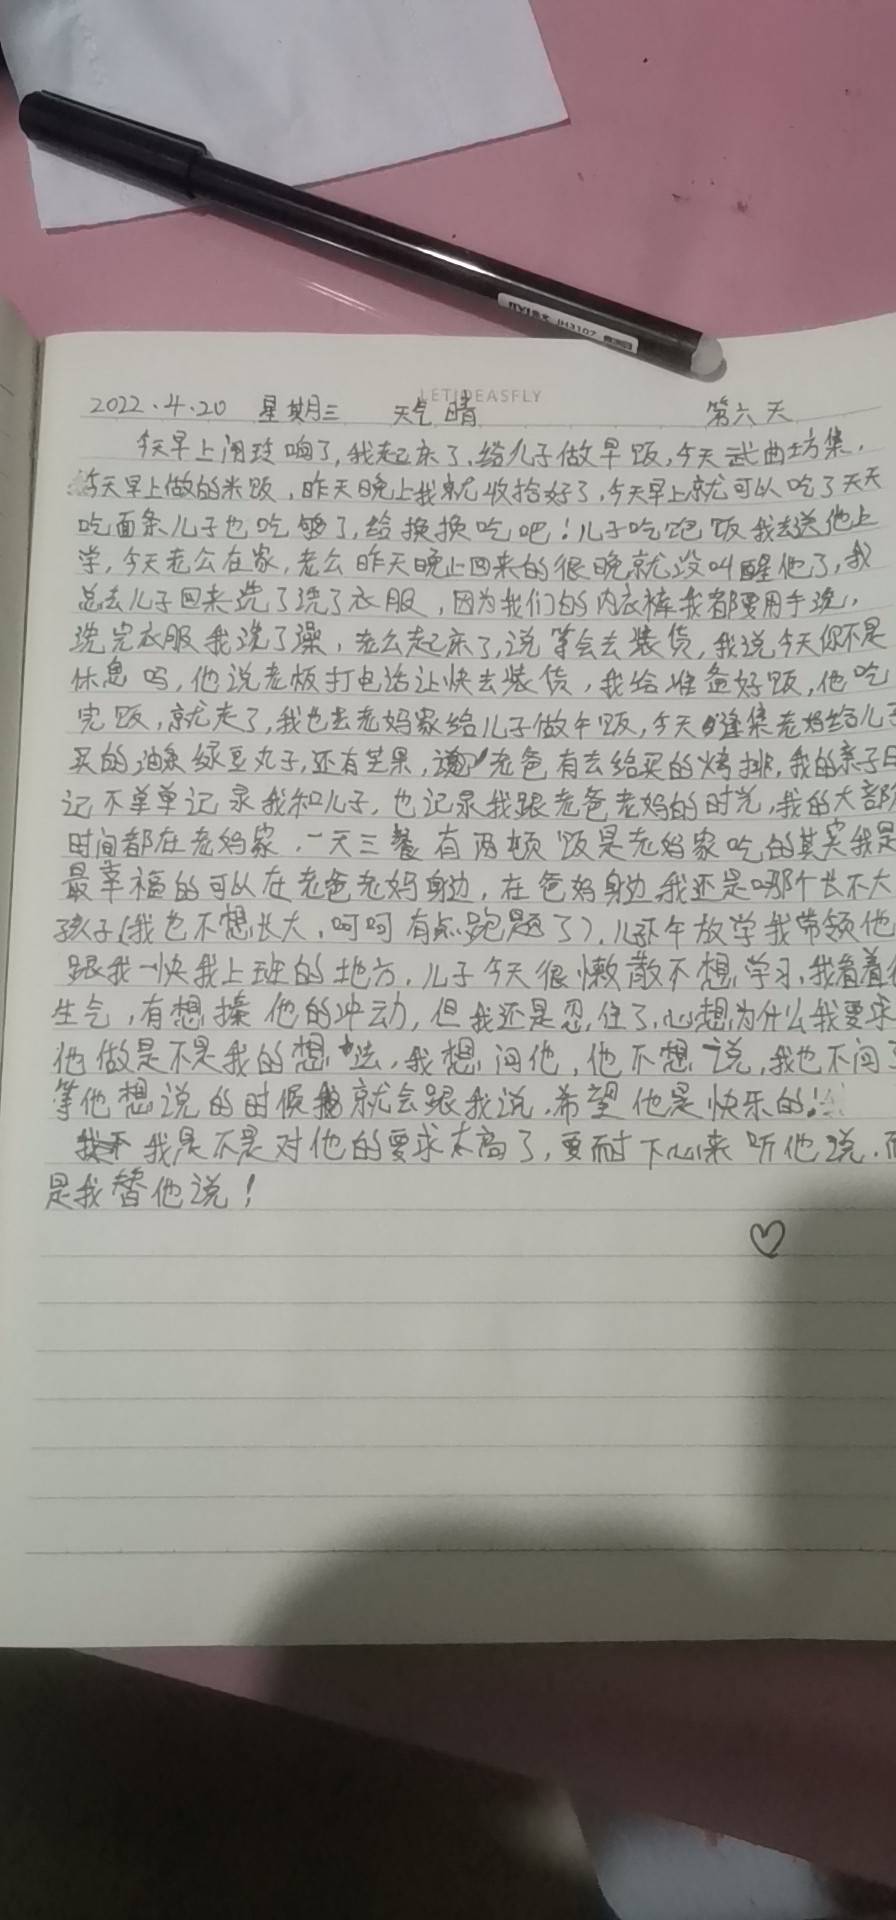 JH3107
LETIDEASFLY
2022.4.20 星期三 天气 晴 第六天
今天早上闹玲响了,我起床了,给儿子做早饭,今天武曲坊集,
今天早上做的米饭,昨天晚上我就收拾好了,今天早上就可以吃了天天
吃面条儿子也吃够了,给换换吃吧!儿子吃饱饭我去送他上
学,今天老公在家,老公昨天晚上回来的很晚就没叫醒他了,我
送去儿子回来洗了洗了衣服,因为我们的内衣裤我都要用手洗,
洗完衣服我洗了澡,老公起床了,说等会去装货,我说今天你不是
休息吗,他说老板打电话让快去装货,我给准备好饭,他吃
完饭,就走了,我也去老妈家给儿子做午饭,今天逢集老妈给儿子
买的油条绿豆丸子,还有苹果,老爸有去给买的烤排,我的亲子日
记不单单记录我和儿子,也记录我跟老爸老妈的时光,我的大部分
时间都在老妈家,一天三餐有两顿饭是老妈家吃的其实我是
最幸福的可以在老爸老妈身边,在爸妈身边我还是哪个长不大
孩子(我也不想长大,呵呵有点跑题了).儿子下午放学我带领他
跟我一快我上班的地方,儿子今天很懒散不想学习,我看着
生气,有想揍他的冲动,但我还是忍住了,心想为什么我要求
他做是不是我的想法,我想问他,他不想说,我也不问了
等他想说的时候我就会跟我说,希望他是快乐的!
我是不是对他的要求太高了,要耐下心来听他说,而
是我替他说!